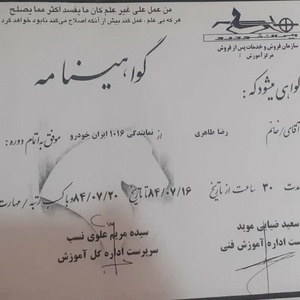 من عمل علی غیر علم کان ما یفسد اکثر مما یصلح
هر که بی علم، عمل کند بیش از آنکه اصلاح می‌کند نابود خواهد کرد
سازمان فروش و خدمات پس از فروش
مرکز آموزش
گواهینامه
گواهی میشود که:
آقای/خانم رضا طاهری از نمایندگی ۱۰۱۶ ایران خودرو موفق به اتمام دوره:
مدت ۳۰ ساعت از تاریخ ۸۴/۰۷/۱۶ تا تاریخ ۸۴/۰۷/۲۰ رتبه/مهارت
سعید ضیایی موید
ست اداره آموزش فنی
سیده مریم علوی نسب
سرپرست اداره کل آموزش